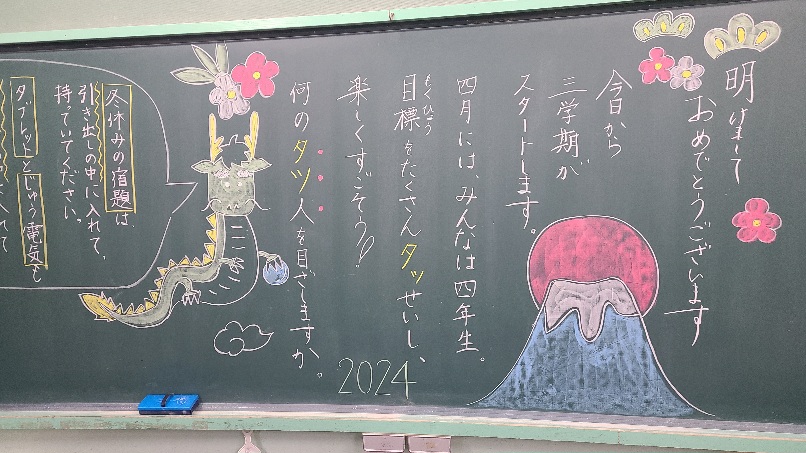 明けまして
おめでとうございます
今日から
三学期が
スタートします。
四月には、みんなは四年生。
もくひょう
目標をたくさんタッせいし、
楽しくすごそう!!
何のタツ人を目ざしますか。
2024
冬休みの宿題は、
引き出しの中に入れて、
持っていてください。
タブレットとじゅう電気も